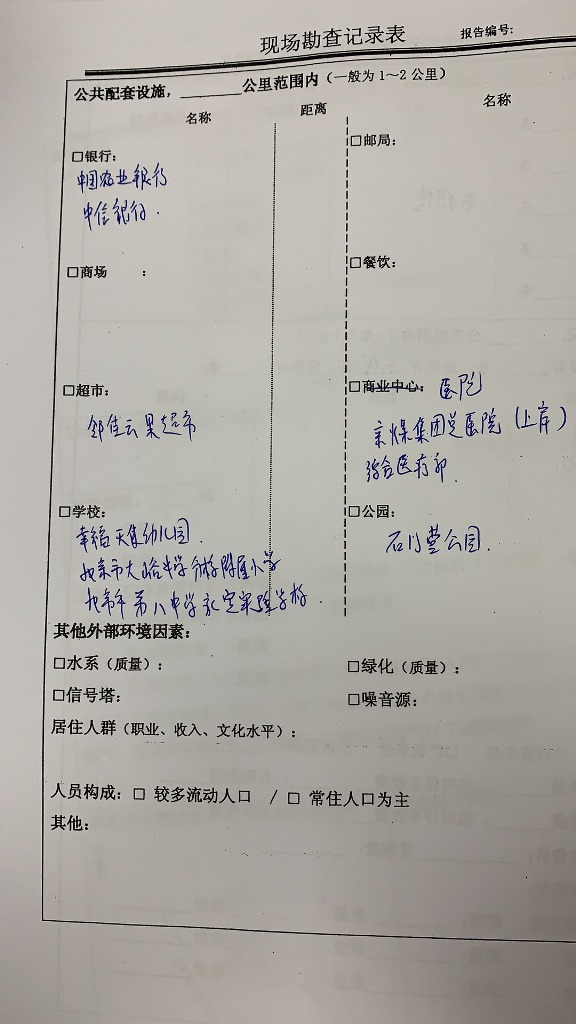 现场勘查记录表
报告编号:
公共配套设施，________公里范围内（一般为1～2公里）
名称
距离
名称
□银行：
中国农业银行
中信银行.
□邮局：
□商场：
□餐饮：
□超市：
邻佳云果超市
□商业中心： 医院
京煤集团总医院（上岸）
综合医疗部
□学校：
幸福天使幼儿园.
北京市大峪中学分校附属小学
北京市第八中学永定实验学校.
□公园：
石门营公园.
其他外部环境因素：
□水系（质量）：
□绿化（质量）：
□信号塔：
□噪音源：
居住人群（职业、收入、文化水平）：
人员构成：□ 较多流动人口 / □ 常住人口为主
其他：